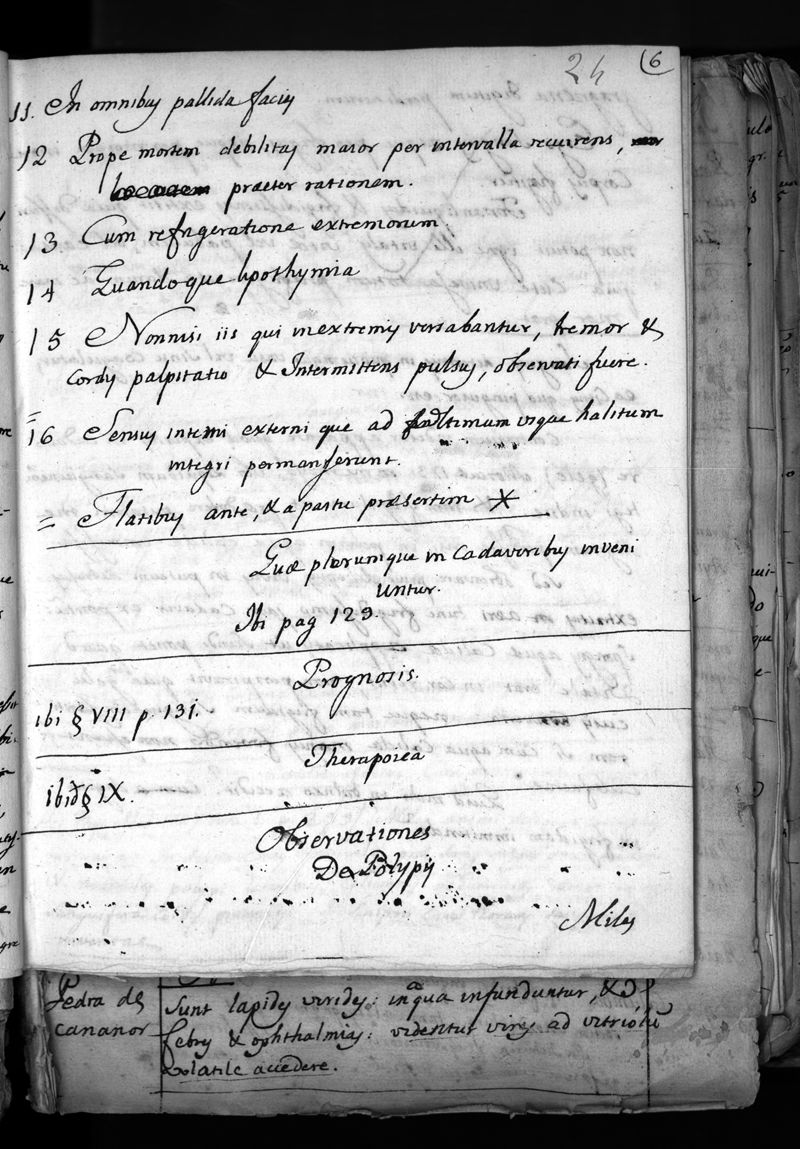 24 (6
11. In omnibus pallida facies
12 Prope mortem debilitas maior per intervalla recurrens,
præter rationem.
13 Cum refrigeratione extremorum.
14 Quandoque lipothymia
15 Nonnisi iis qui in extremis versabantur, tremor &
Cordis palpitatio & Intermittens pulsus, observati fuere.
16 Sensus interni externi que ad ultimum usque halitum
integri permanserunt.
= Flatibus ante, & a pastu præsertim
Quæ plerumque in Cadaveribus inveni
untur.
Ibi pag 129.
Prognosis.
ibi § VIII p. 131.
Therapeia
ibid § IX.
Observationes
De Polypis
Miles
Pedra de
cananor
Sunt lapides virides: in aqua infunduntur, &
febris & ophthalmias: videntur vires ad vitriolũ
volatile accedere.